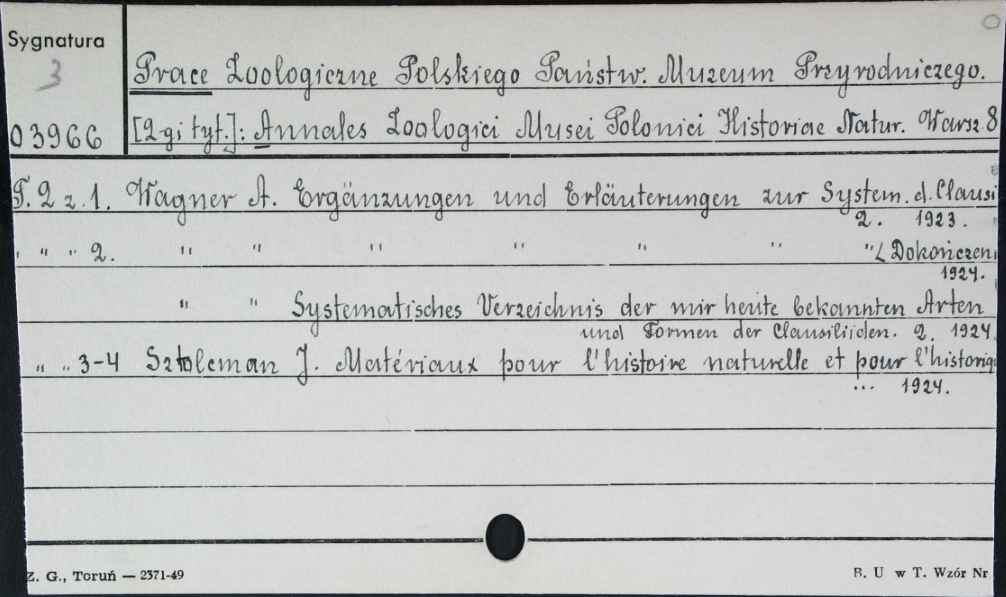 Sygnatura
3
03966
Prace Zoologiczne Polskiego Państw. Muzeum Przyrodniczego.
[2-gi tyt.]: Annales Zoologici Musei Polonici Historiae Natur. Warsz 8
T. 2 z. 1. Wagner A. Ergänzungen und Erläuterungen zur System. d. Clausi
2. 1923.
" " " 2. " " " " " " "/Dokończeni
1924.
" " Systematisches Verzeichnis der mir heute bekannten Arten
und Formen der Clausiliiden. 2. 1924
" " 3-4 Sztolcman J. Matériaux pour l'histoire naturelle et pour l'historiq
... 1924.
Z. G., Toruń — 2371-49
B. U w T. Wzór Nr